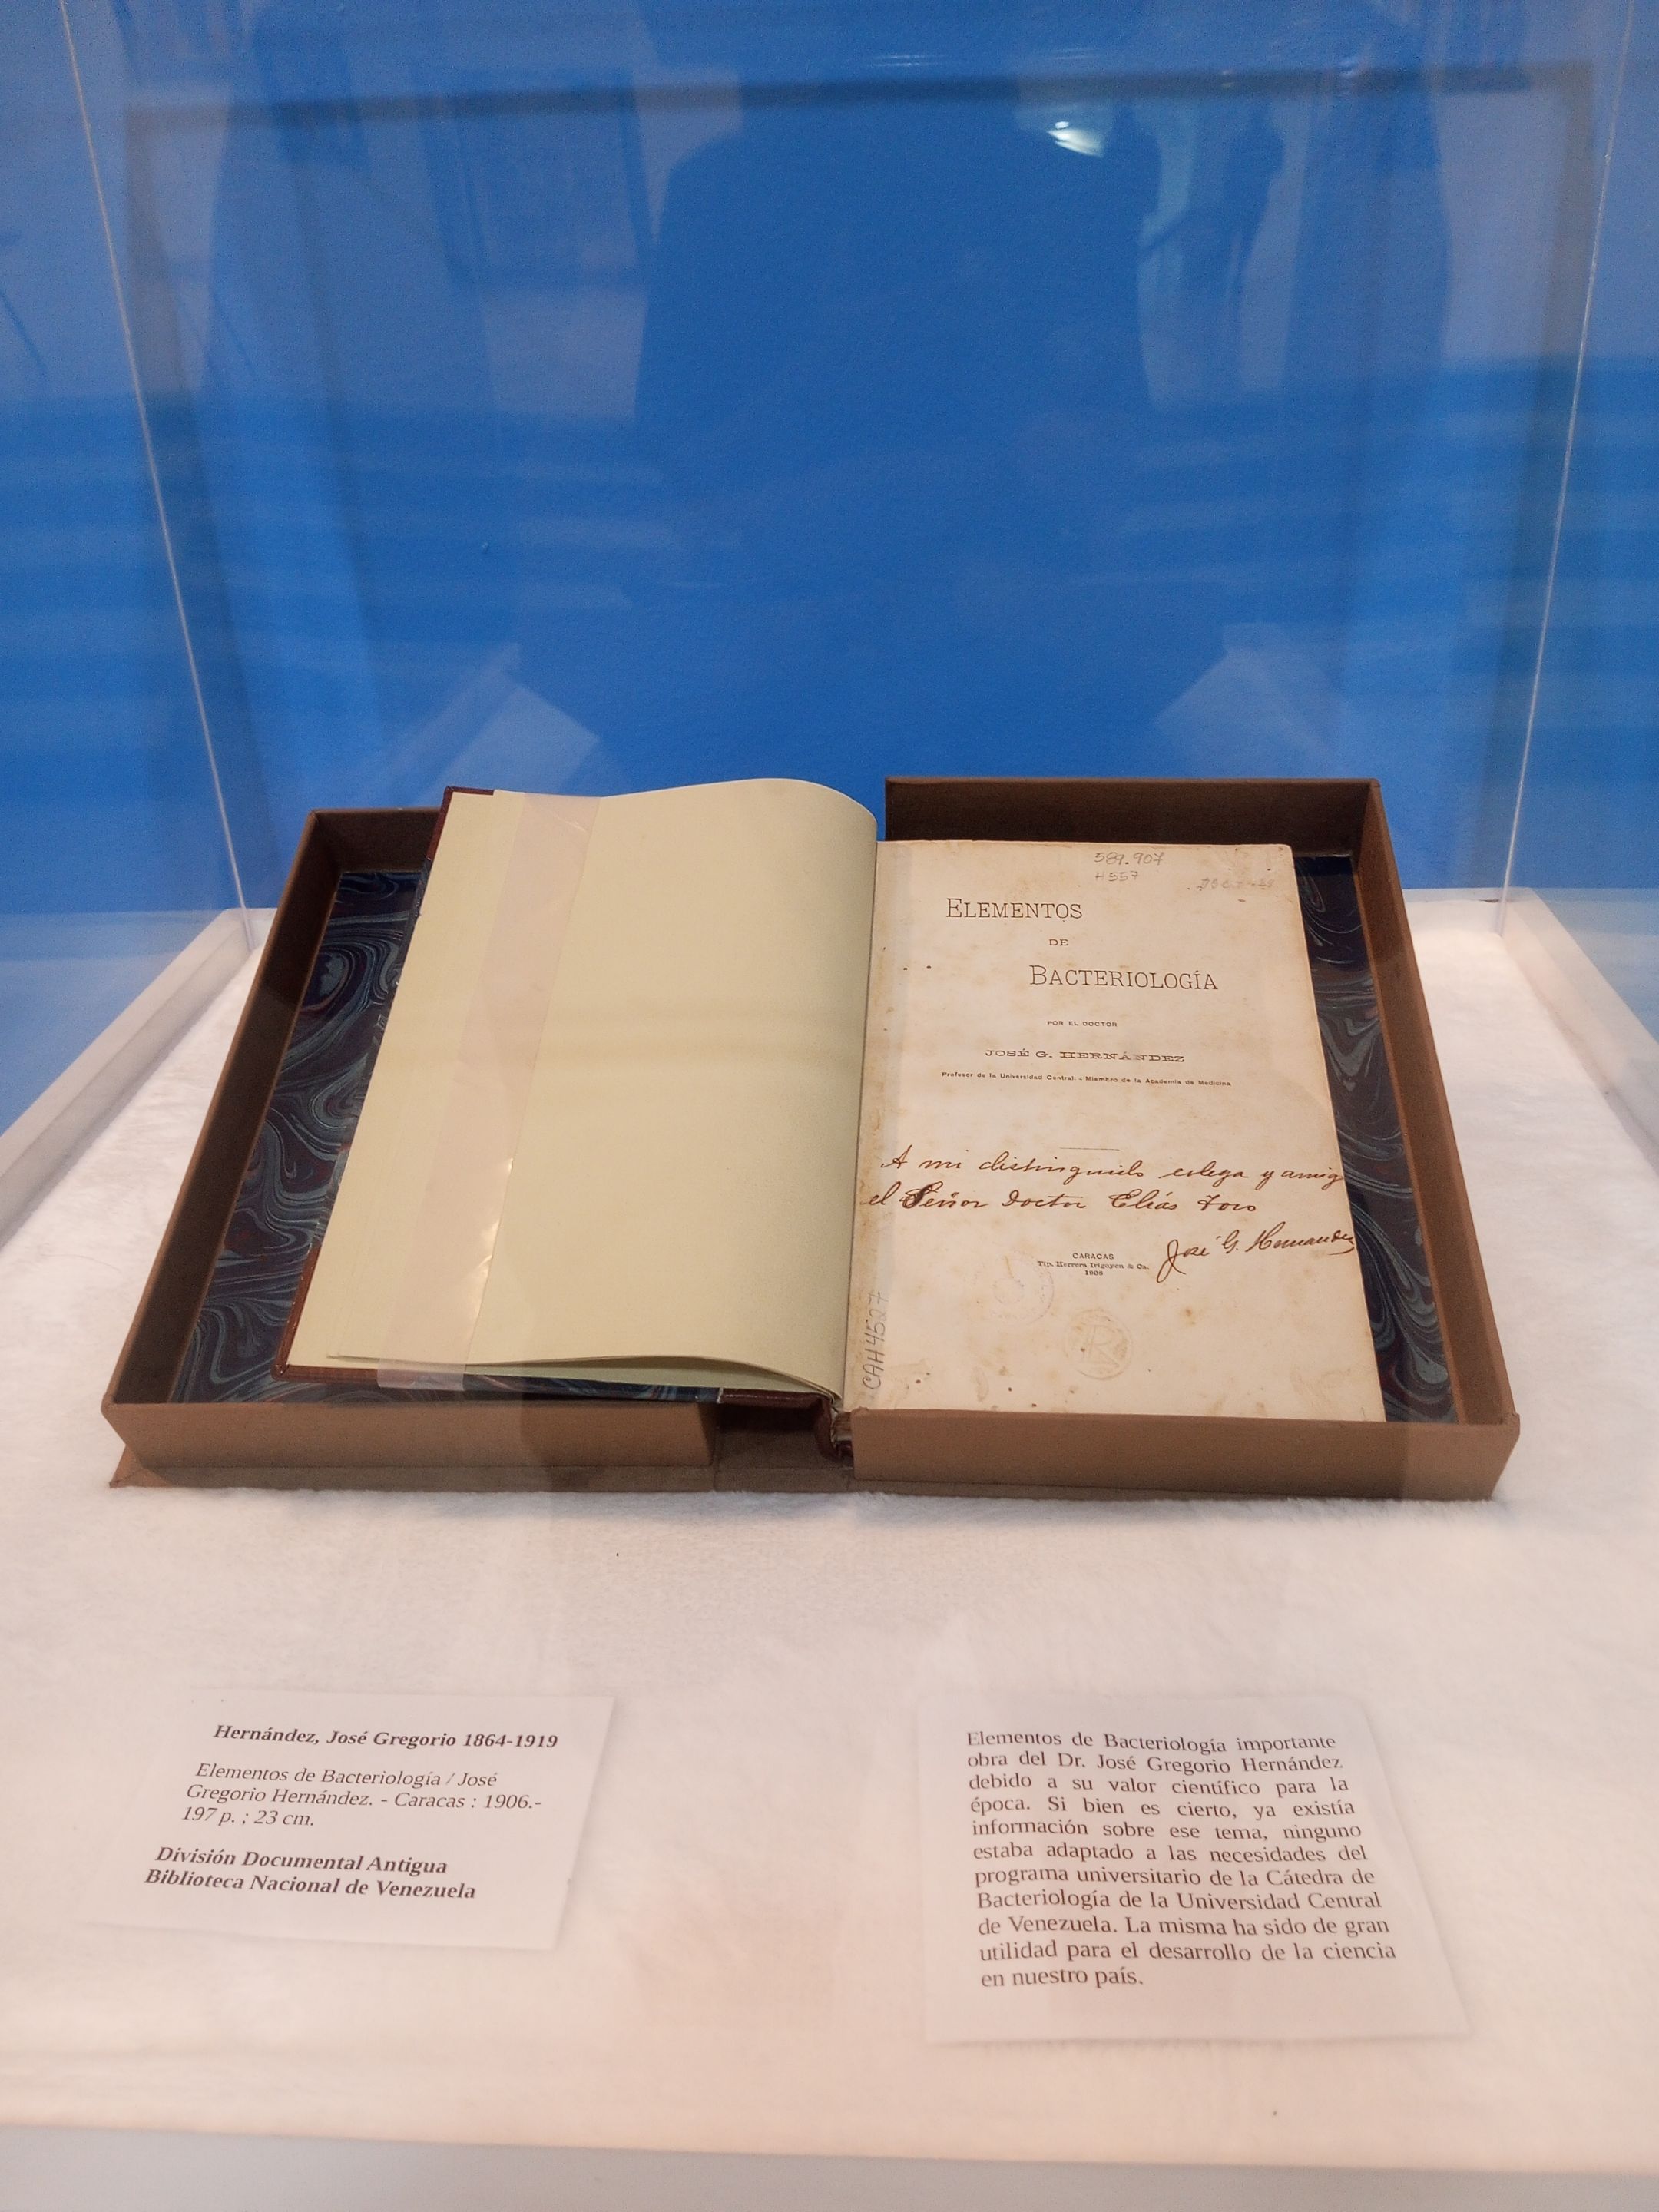 589.907
H557
ELEMENTOS
DE
BACTERIOLOGÍA
POR EL DOCTOR
JOSÉ G. HERNÁNDEZ
Profesor de la Universidad Central. - Miembro de la Academia de Medicina
A mi distinguido colega y amig
el Señor Doctor Elías Toro
José G. Hernandez
CARACAS
Tip. Herrera Irigoyen & Ca.
1906
CAH4527
Hernández, José Gregorio 1864-1919
Elementos de Bacteriología / José
Gregorio Hernández. - Caracas : 1906.-
197 p. ; 23 cm.
División Documental Antigua
Biblioteca Nacional de Venezuela
Elementos de Bacteriología importante
obra del Dr. José Gregorio Hernández
debido a su valor científico para la
época. Si bien es cierto, ya existía
información sobre ese tema, ninguno
estaba adaptado a las necesidades del
programa universitario de la Cátedra de
Bacteriología de la Universidad Central
de Venezuela. La misma ha sido de gran
utilidad para el desarrollo de la ciencia
en nuestro país.